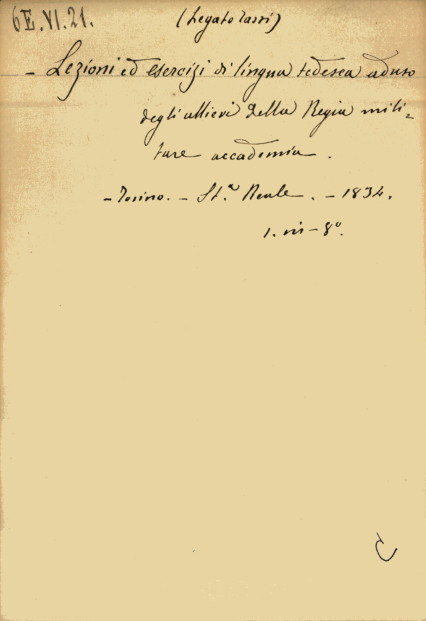 6E.VI.21.
(Legato Tarri)
- Lezioni ed esercizi di lingua tedesca ad uso
degli allievi della Regia mili-
tare accademia.
- Torino. - St.ª Reale. - 1834.
1. in - 8º.